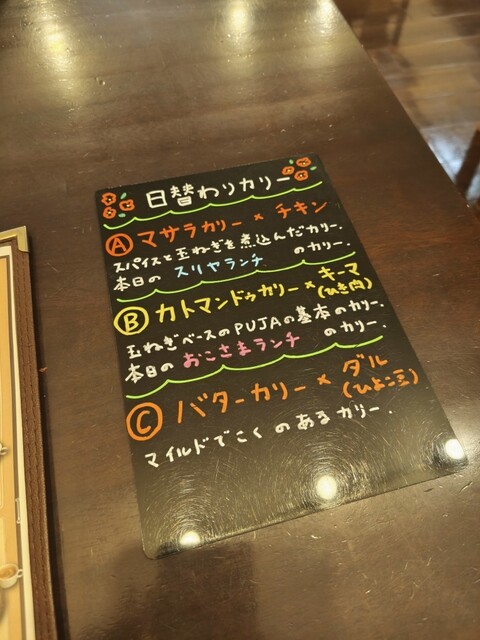 日替わりカリー
Ⓐ マサラカリー × チキン
スパイスと玉ねぎを煮込んだカリー.
本日の スリヤランチ のカリー.
Ⓑ カトマンドゥカリー × キーマ
(ひき肉)
玉ねぎベースのPUJAの基本のカリー.
本日の おこさまランチ のカリー.
Ⓒ バターカリー × ダル
(ひよこ豆)
マイルドでこくのあるカリー.